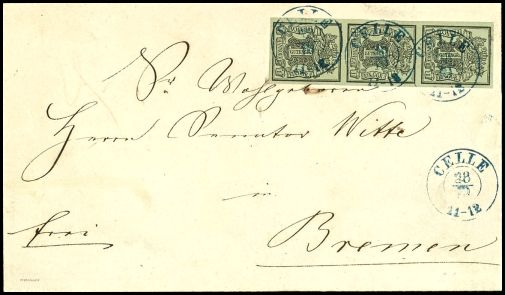 CELLE CELLE CELLE
11-12
Sr. Wohlgeboren
Herrn Senator Witte
CELLE
28
11-12
in
frei
Bremen